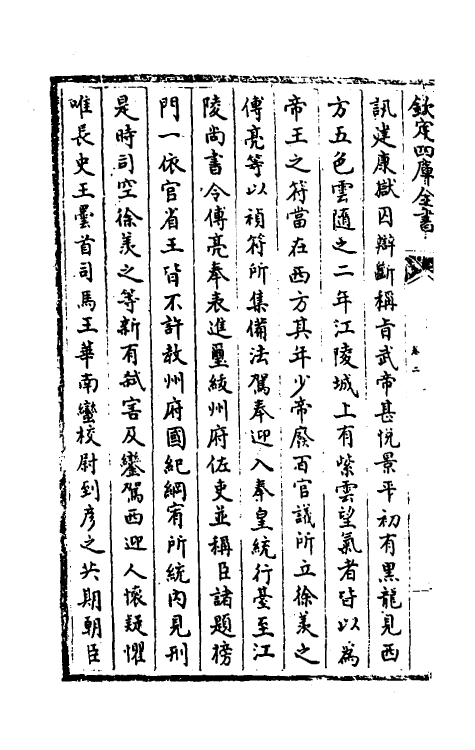 欽定四庫全書
卷二
訊建康獄囚辯斷稱旨武帝甚悅景平初有黑龍見西
方五色雲隨之二年江陵城上有紫雲望氣者皆以為
帝王之符當在西方其年少帝廢百官議所立徐羨之
傅亮等以禎符所集備法駕奉迎入奉皇統行臺至江
陵尚書令傅亮奉表進璽紱州府佐吏並稱臣諸題榜
門一依宫省王皆不許教州府國紀綱宥所統內見刑
是時司空徐羨之等新有弑害及鑾駕西迎人懷疑懼
唯長史王曇首司馬王華南蠻校尉到彥之共期朝臣